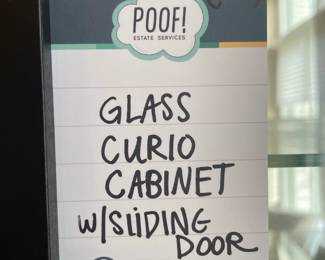 POOF!
ESTATE SERVICES
GLASS
CURIO
CABINET
W/SLIDING
DOOR